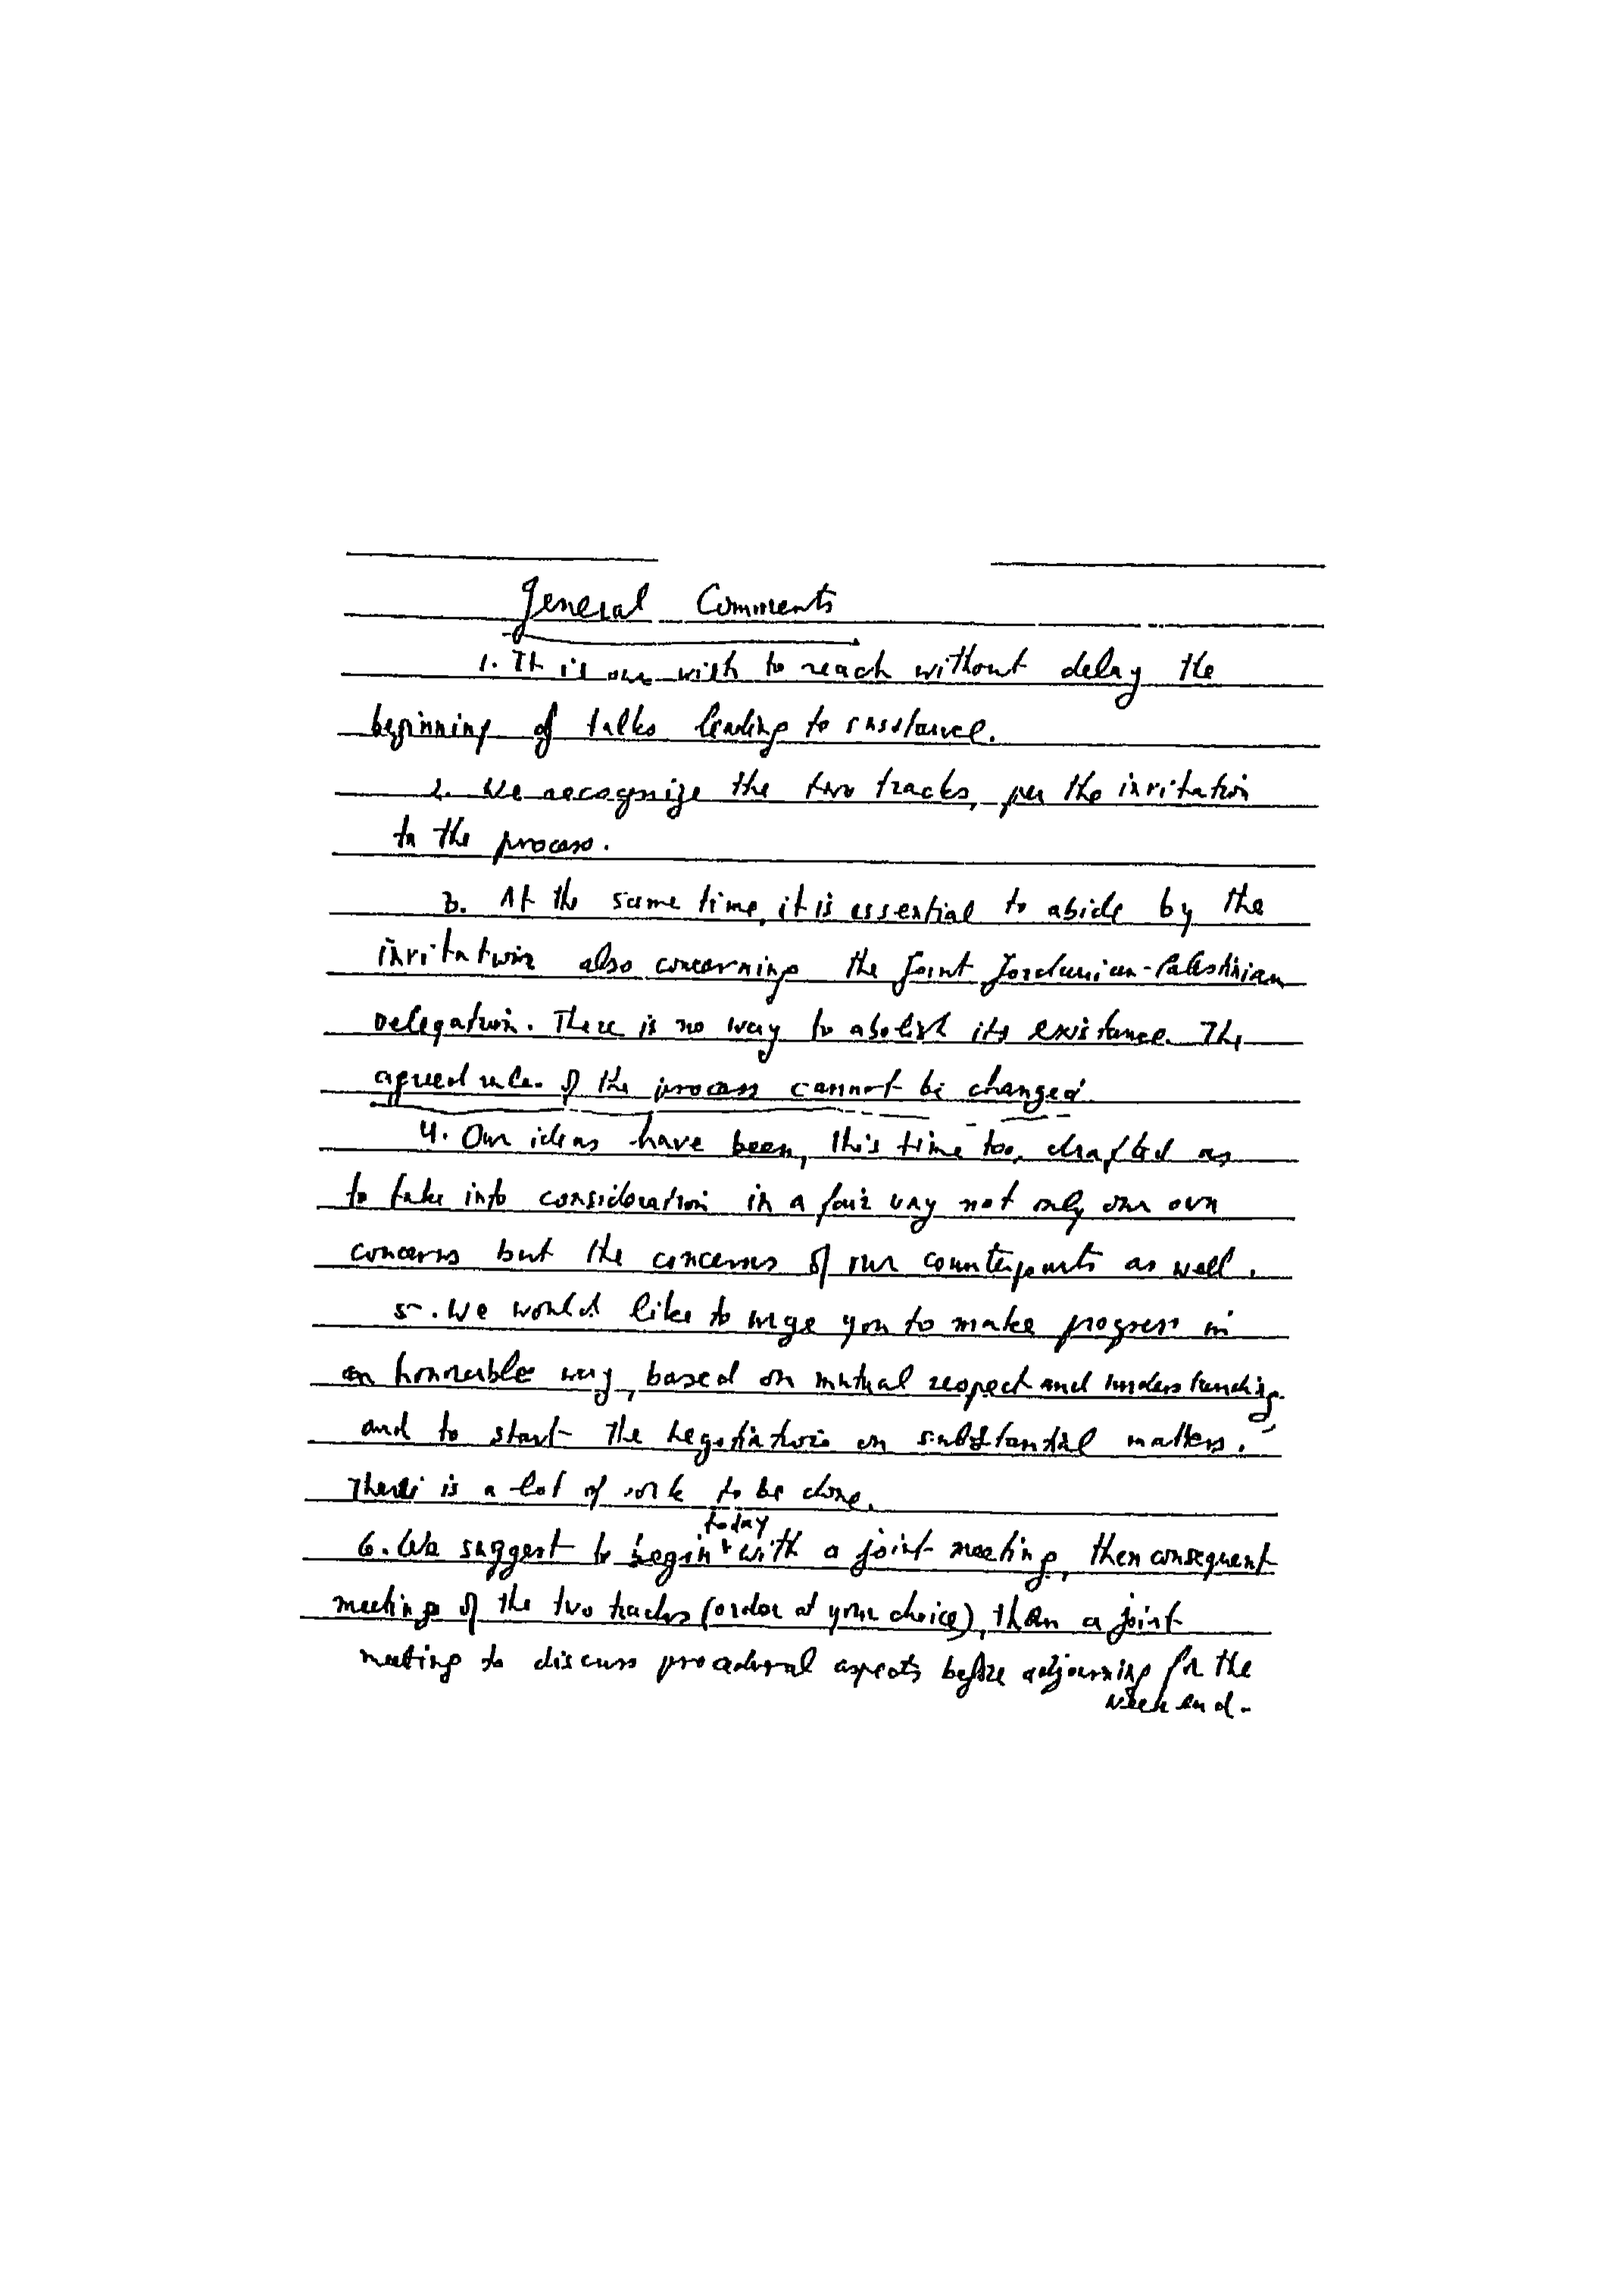 General Comments
1. It is our wish to reach without delay the
beginning of talks leading to substance.
2. We recognize the two tracks, per the invitation
to the process.
3. At the same time, it is essential to abide by the
invitation also concerning the Joint Jordanian-Palestinian
Delegation. There is no way to abolish its existence. The
agreed rules of the process cannot be changed.
4. Our ideas have been, this time too, drafted as
to take into consideration in a fair way not only our own
concerns but the concerns of our counterparts as well.
5. We would like to urge you to make progress in
an honorable way, based on mutual respect and understanding,
and to start the negotiations on substantial matters.
There is a lot of work to be done.
today
6. We suggest to begin with a joint meeting, then consequent
meetings of the two tracks (order at your choice), then a joint
meeting to discuss procedural aspects before adjourning for the
weekend.